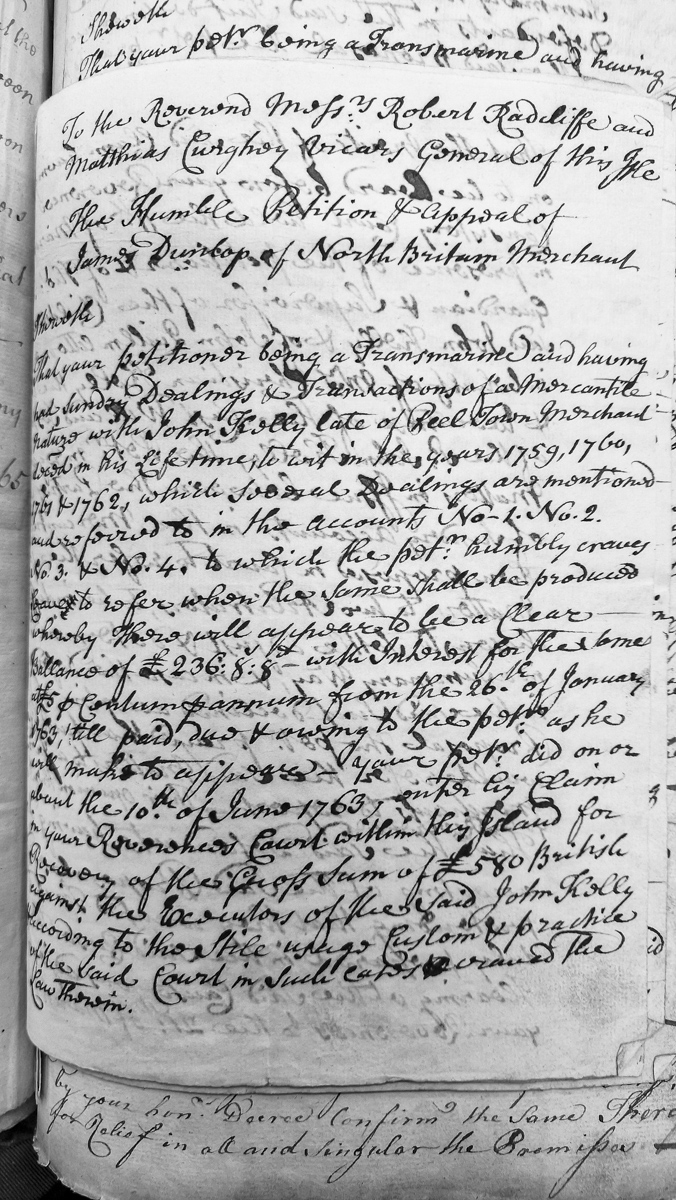 Sheweth
That your petr. being a Transmarine and having
To the Reverend Messrs. Robert Radcliffe and
Matthias Curghey Vicars General of this Isle
The Humble Petition & Appeal of
James Dunlop of North Britain Merchant
Sheweth
That your petitioner being a Transmarine and having
had Sundry Dealings & Transactions of a Mercantile
nature with John Kelly late of Peel Town Merchant
deced in his Life time, to wit in the years 1759, 1760,
1761 & 1762, which several Dealings are mentioned
and referred to in the accounts No. 1. No. 2.
No. 3. & No. 4. to which the petr. humbly craves
leave to refer when the same shall be produced
whereby there will appear to be a Clear
Ballance of £236:8:8d with Interest for the same
at £5 p Centum p annum from the 26th. of January
1763, till paid, due & owing to the petr. as he
will make to appear - Your petr. did on or
about the 10th. of June 1763, enter his Claim
in your Reverences Court within this Island for
Recovery of the Gross Sum of £580 British
against the Executors of the said John Kelly
according to the Stile usage Custom & practice
of the said Court in such cases & craved the
Law therein.
by your honrs. Decree Confirmd the Same
for Relief in all and singular the Premisses